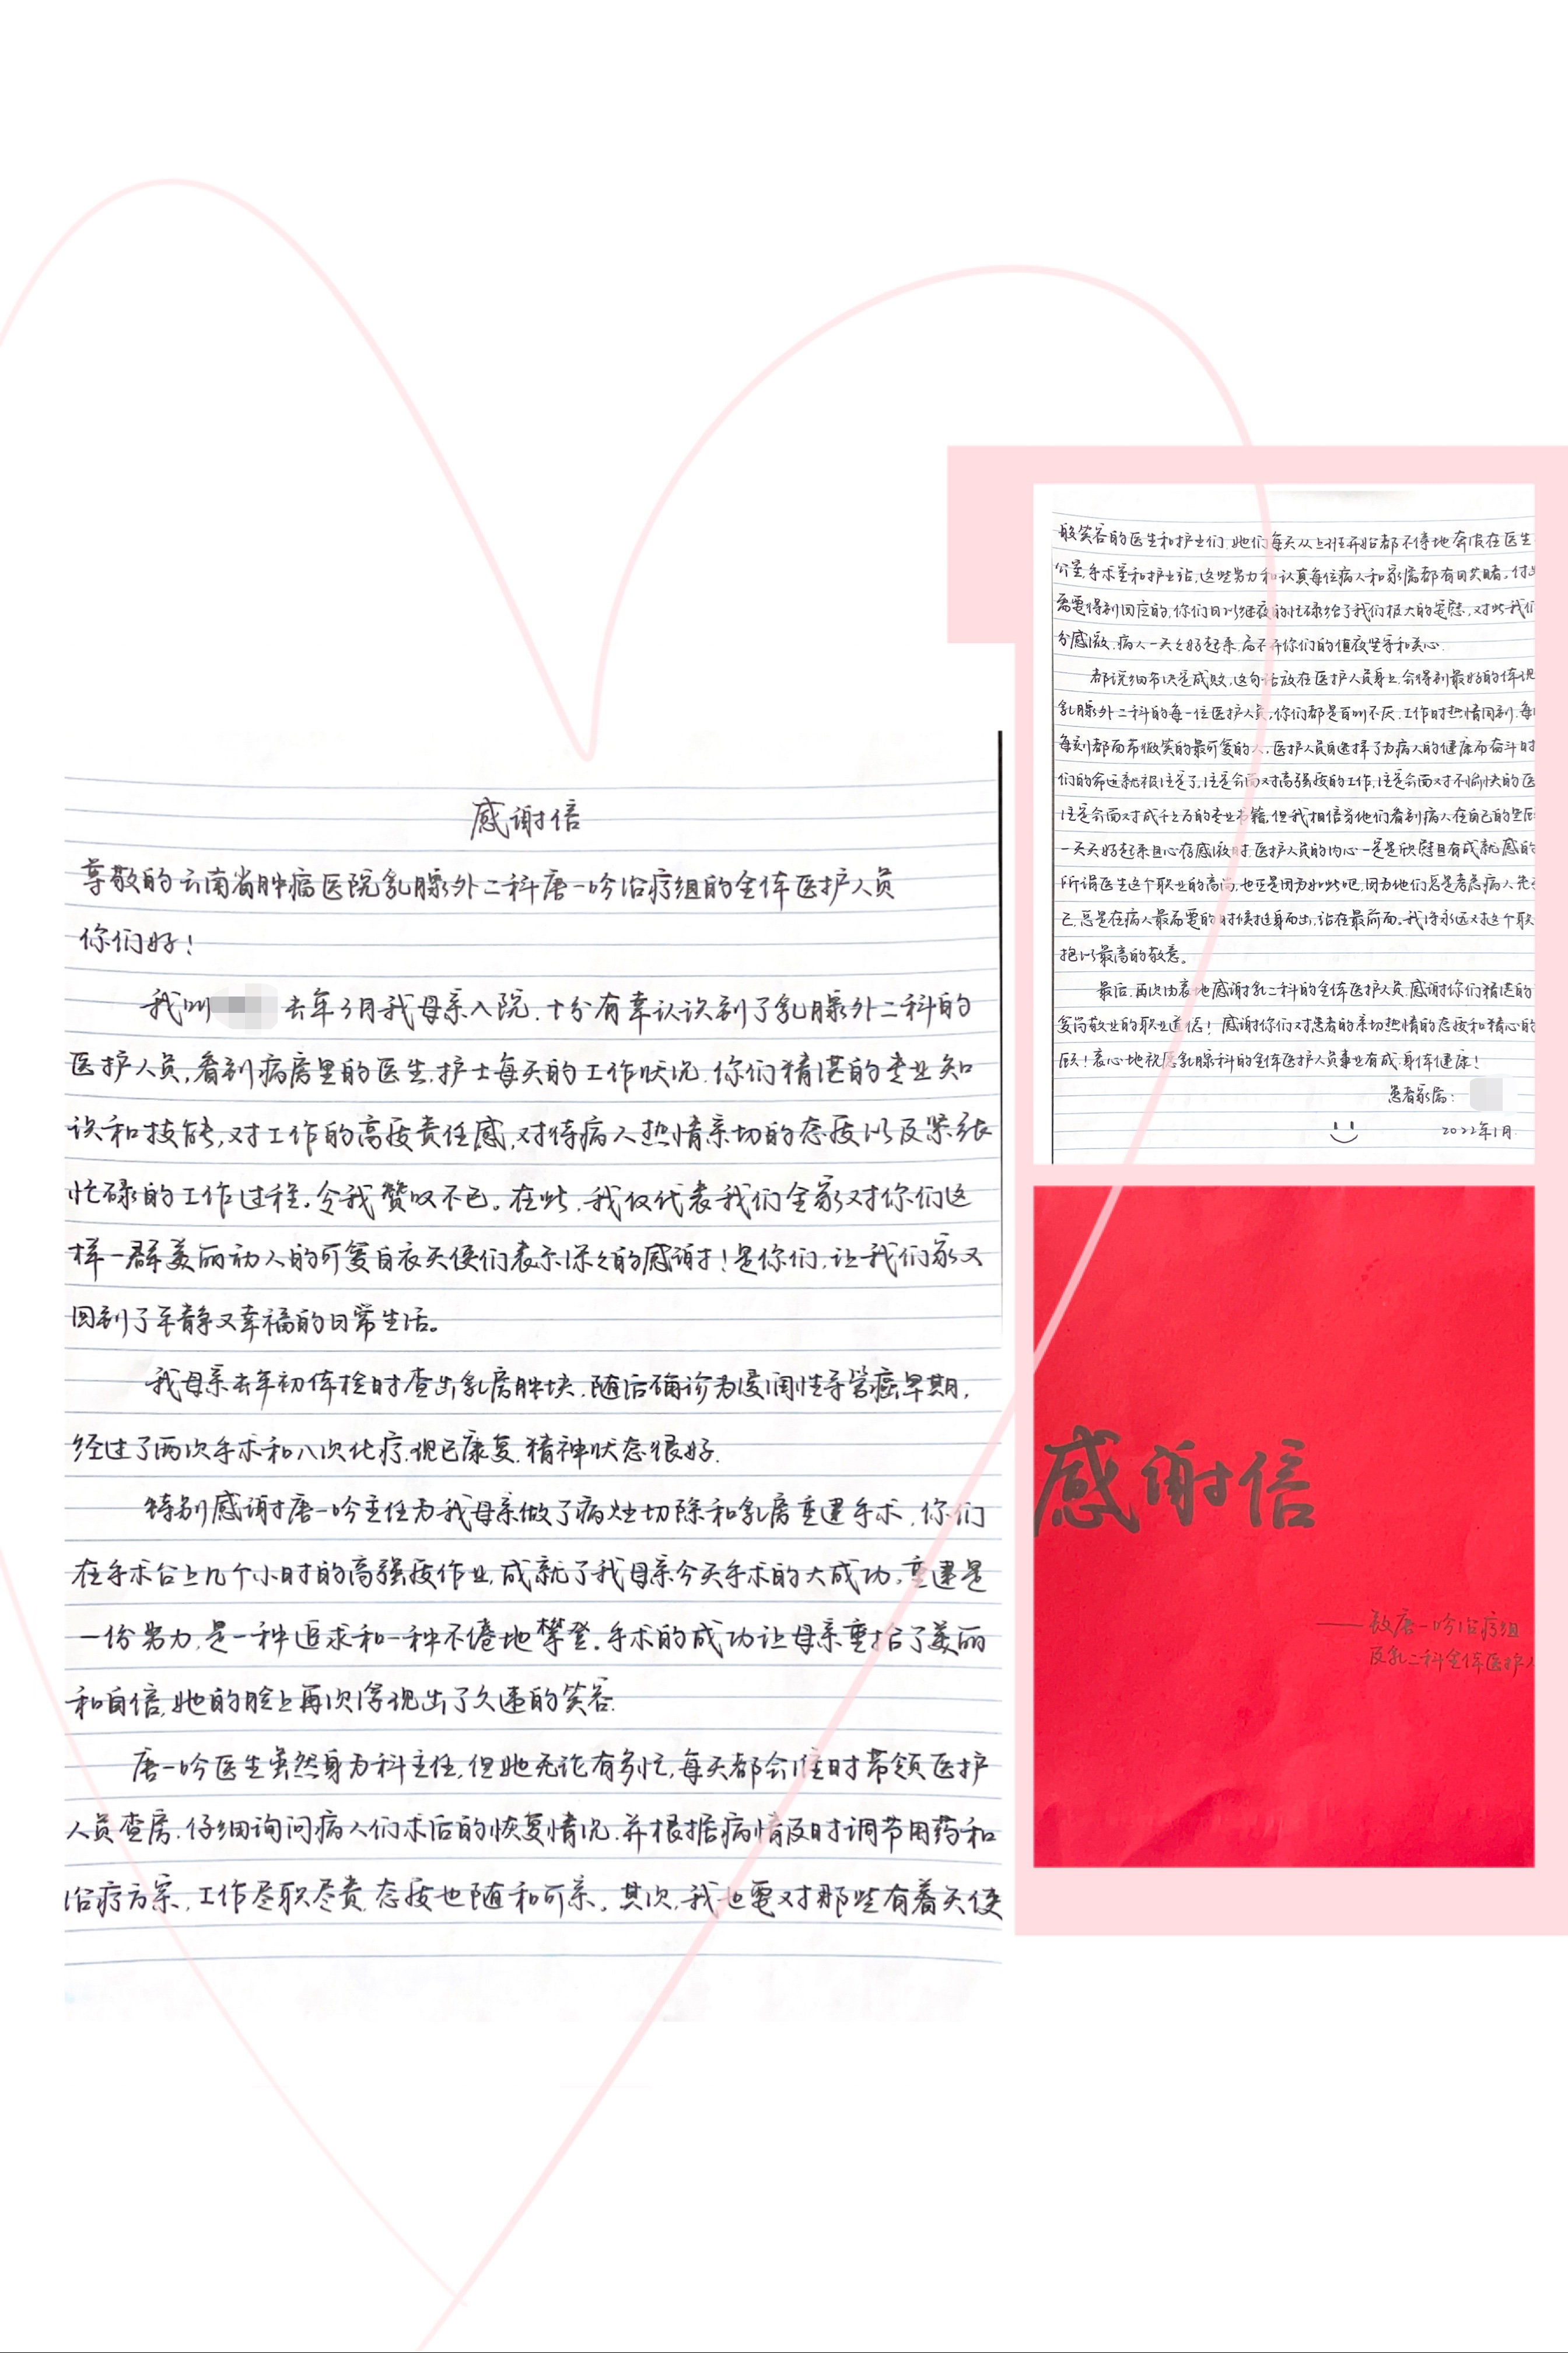 感谢信
尊敬的云南省肿瘤医院乳腺外二科唐一吟治疗组的全体医护人员
你们好!
我叫 去年3月我母亲入院,十分有幸认识到了乳腺外二科的
医护人员,看到病房里的医生,护士每天的工作状况,你们精湛的专业知
识和技能,对工作的高度责任感,对待病人热情亲切的态度以及紧张
忙碌的工作过程,令我赞叹不已。在此,我仅代表我们全家对你们这
样一群美丽动人的可爱白衣天使们表示深々的感谢!是你们,让我们家又
回到了平静又幸福的日常生活。
我母亲去年初体检时查出乳房肿块,随后确诊为浸润性导管癌早期,
经过了两次手术和八次化疗,现已康复,精神状态很好.
特别感谢唐一吟主任为我母亲做了病灶切除和乳房重建手术,你们
在手术台上几个小时的高强度作业,成就了我母亲今天手术的大成功,重建是
一份努力,是一种追求和一种不倦地攀登,手术的成功让母亲重拾了美丽
和自信,她的脸上再次浮现出了久违的笑容.
唐一吟医生虽然身为科主任,但她无论有多忙,每天都会准时带领医护
人员查房,仔细询问病人们术后的恢复情况,并根据病情及时调节用药和
治疗方案,工作尽职尽责,态度也随和可亲。其次,我也要对那些有着天使
般笑容的医生和护士们,她们每天从上班开始都不停地奔波在医生
公室,手术室和护士站,这些努力和认真每位病人和家属都有目共睹。付出
需要得到回应的,你们日以继夜的忙碌给了我们极大的安慰,对此我们
分感激,病人一天々好起来,离不开你们的值夜坚守和关心.
都说细节决定成败,这句话放在医护人员身上会得到最好的体现
乳腺外二科的每一位医护人员,你们都是百问不厌,工作时热情周到,每
每刻都面带微笑的最可爱的人,医护人员自选择了为病人的健康而奋斗时
们的命运就被注定了,注定会面对高强度的工作,注定会面对不愉快的医
注定会面对成千上万的专业书籍,但我相信当他们看到病人在自己的坚
一天天好起来且心存感激时,医护人员的内心一定是欣慰且有成就感的
所谓医生这个职业的高尚,也正是因为如此吧,因为他们总是考虑病人先
己,总是在病人最需要的时候挺身而出,站在最前面。我将永远对这个职
抱以最高的敬意。
最后,再次由衷地感谢乳二科的全体医护人员,感谢你们精湛的
爱岗敬业的职业道德!感谢你们对患者的亲切热情的态度和精心的
顾!衷心地祝愿乳腺科的全体医护人员事业有成,身体健康!
患者家属:
2022年1月.
感谢信
——致唐一吟治疗组
及乳二科全体医护人